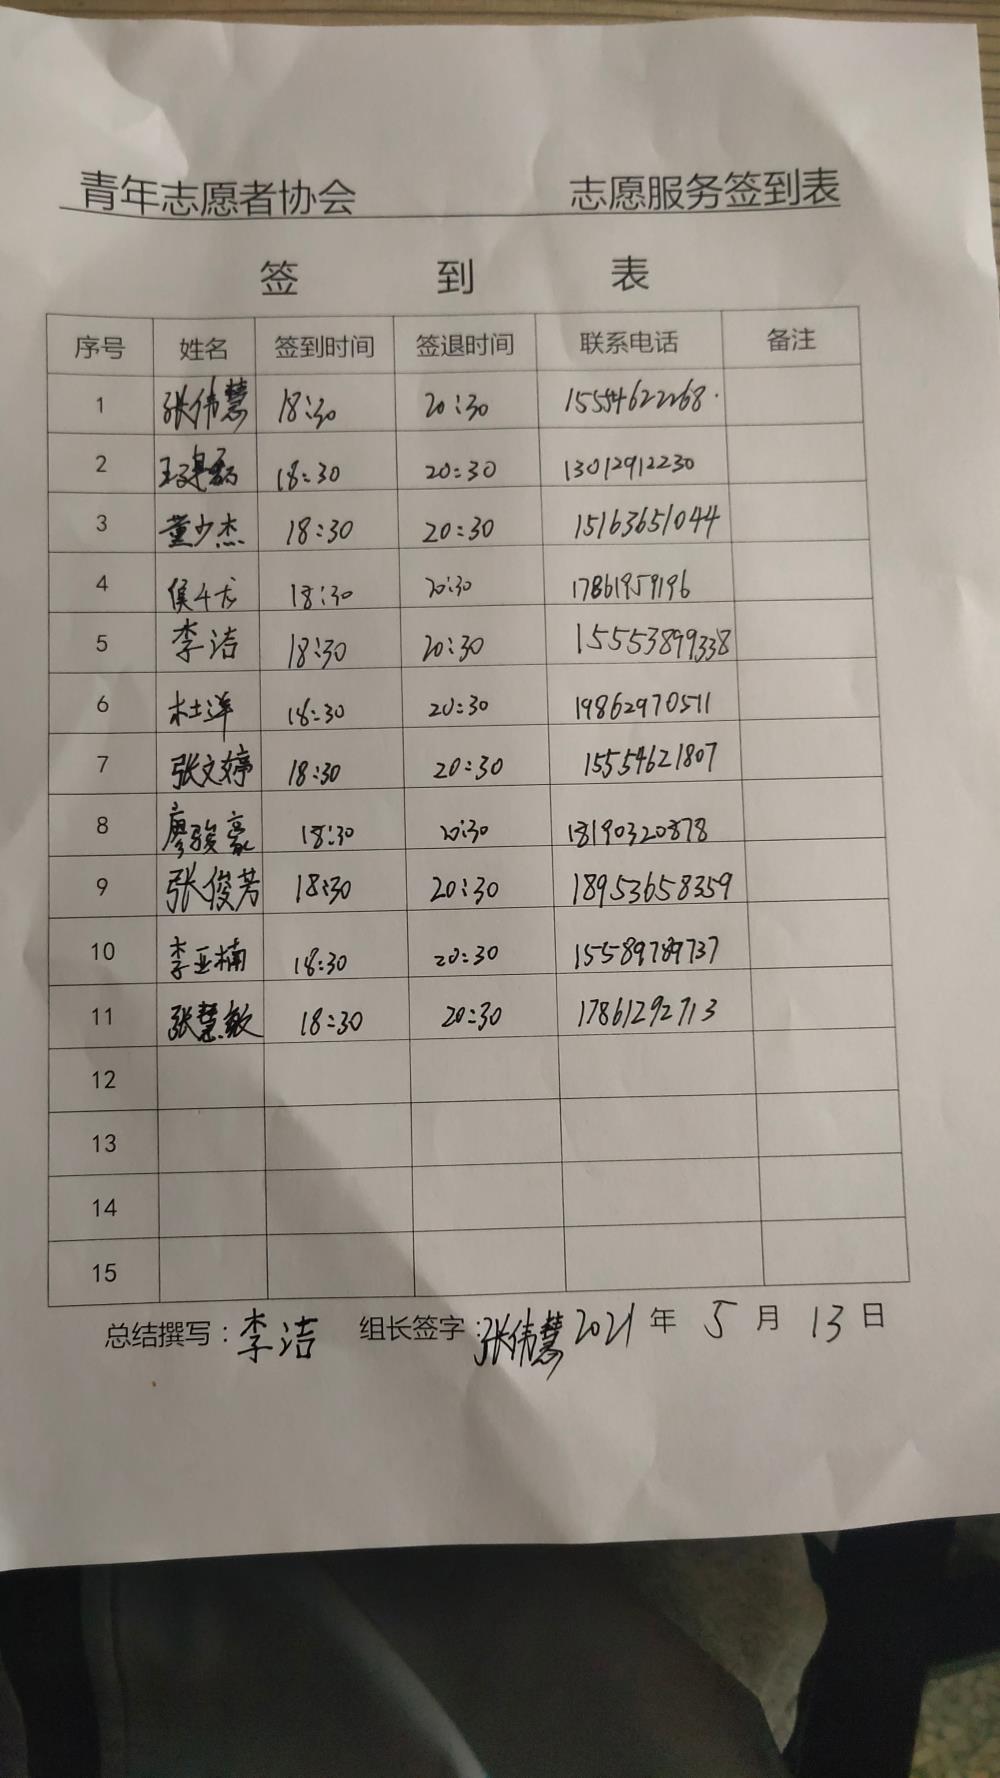 青年志愿者协会 志愿服务签到表
签 到 表
序号 姓名 签到时间 签退时间 联系电话 备注
1 张伟慧 18:30 20:30 15554622268
2 18:30 20:30 13012912230
3 董少杰 18:30 20:30 15163651044
4 18:30 20:30 17861959196
5 李洁 18:30 20:30 15553899338
6 杜洋 18:30 20:30 19862970511
7 张文婷 18:30 20:30 15554621807
8 廖骏豪 18:30 20:30 18190320878
9 张俊芳 18:30 20:30 18953658359
10 李亚楠 18:30 20:30 15589789737
11 张慧敏 18:30 20:30 17861292713
12
13
14
15
总结撰写：李洁 组长签字：张伟慧 2021 年 5 月 13 日